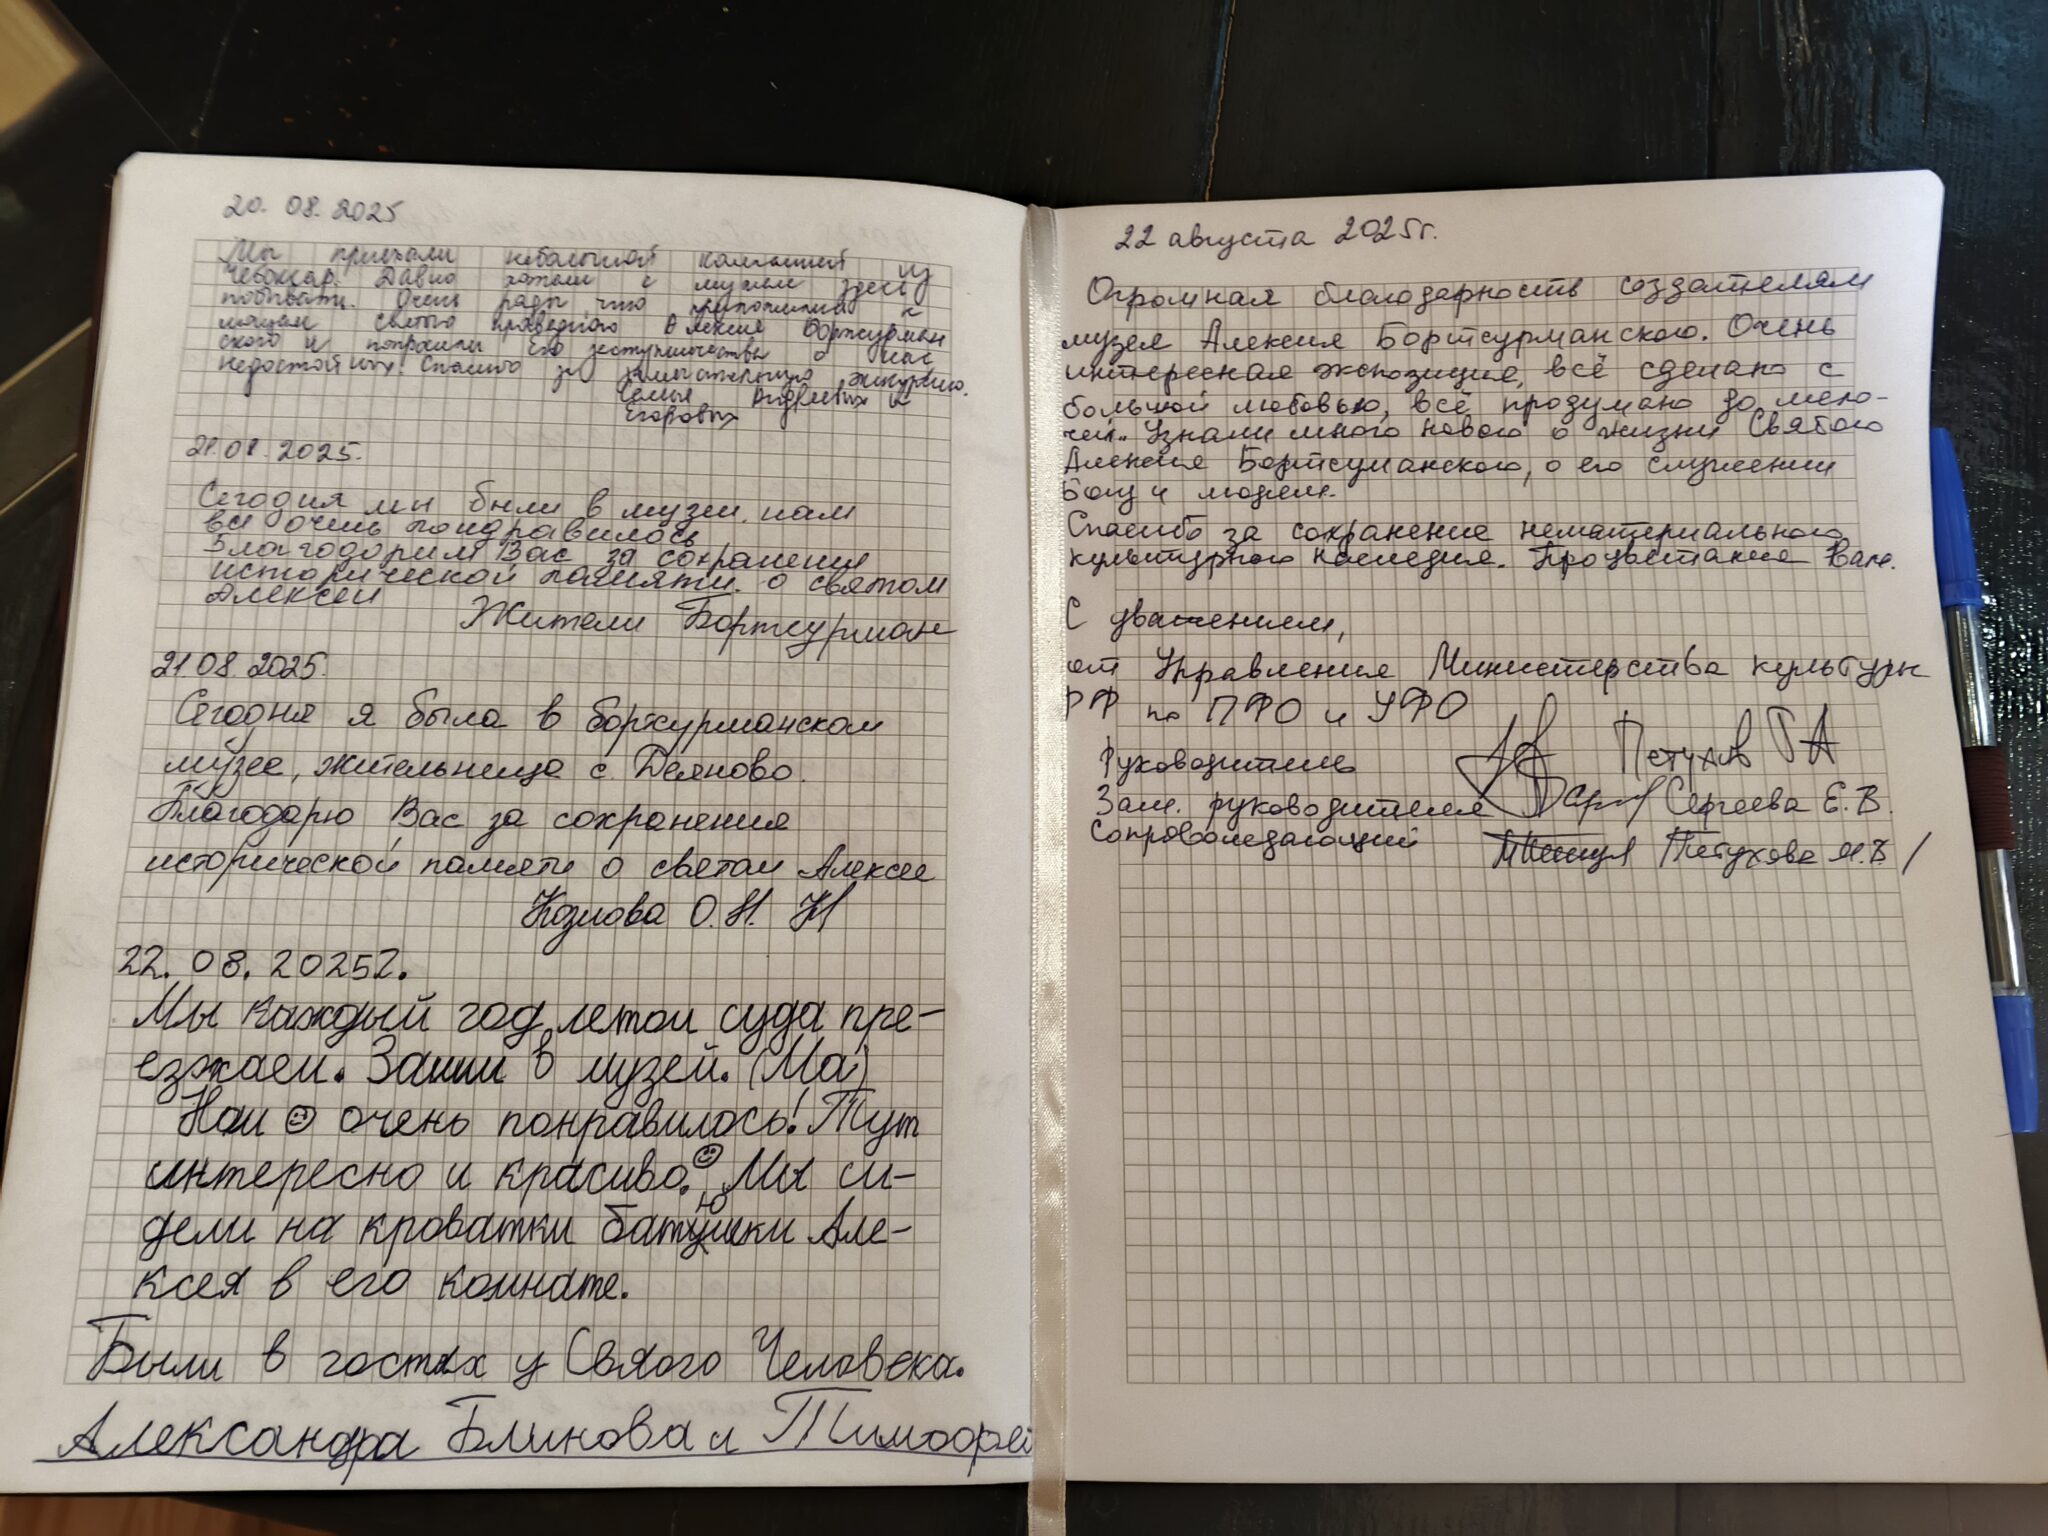 20. 08. 2025
Мы приехали небольшой компанией из
Чебоксар. Давно хотели с мужем здесь
побывать. Очень рады что приложились к
мощам святого праведного Алексия Бортсурман
ского и попросили его заступничества о нас
недостойных! Спасибо за замечательную экскурсию.
Семья Андреевых и
Егоровых
21.08.2025.
Сегодня мы были в музеи. нам
всё очень пондравилось
Благодорим Вас за сохранения
исторической памяти. о святом
Алексеи Жители Бортсурман
21.08.2025.
Сегодня я была в бортсурманском
музее, жительница с. Деяново.
Благодарю Вас за сохранения
исторической памяти о святом Алексее
Козлова О.Н.
22. 08. 2025г.
Мы каждый год летом суда пре-
езжаем. Зашли в музей. (Ма)
Нам ☺ очень понравилось! Тут
интересно и красиво. ☺ Мы си-
дели на кроватки батюшки Але-
ксея в его комнате.
Были в гостях у Свяого Человека.
Александра Блинова и Тимофей
22 августа 2025г.
Огромная благодарность создателям
музея Алексия Бортсурманского. Очень
интересная экспозиция, всё сделано с
большой любовью, всё продумано до мело-
чей.. Узнали много нового о жизни Святого
Алексия Бортсуманского, о его служении
Богу и людям.
Спасибо за сохранение нематериального
культурного наследия. Процветание Вам.
С уважением,
от Управления Министерства культуры
РФ по ПФО и УФО
Руководитель Петухов Г А
Зам. руководителя Сергеева Е. В.
Сопровождающий Петухова М.В /